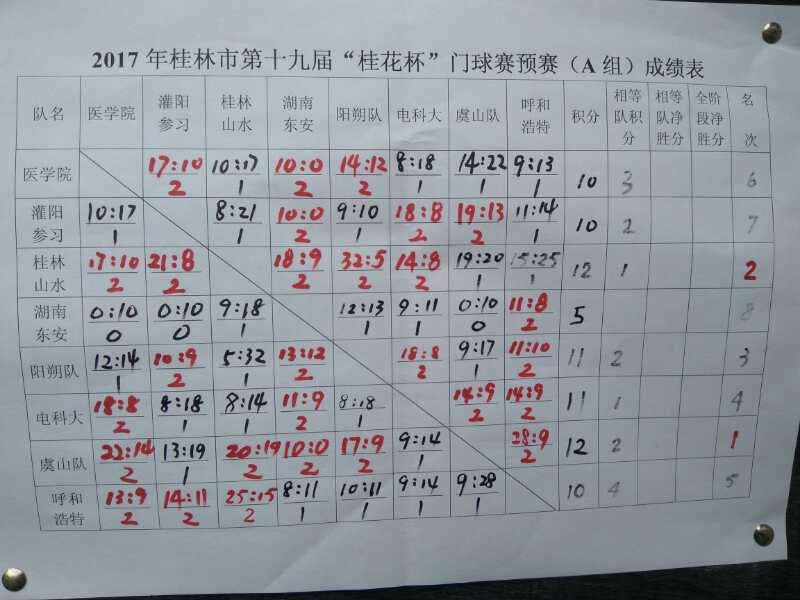 2017 年桂林市第十九届“桂花杯”门球赛预赛（A 组）成绩表
队名 医学院 灌阳参习 桂林山水 湖南东安 阳朔队 电科大 虞山队 呼和浩特 积分 相等队积分 相等队净胜分 全阶段净胜分 名次
医学院 17:10 10:17 10:0 14:12 8:18 14:22 9:13
2 1 2 2 1 1 1 10 3 6
灌阳参习 10:17 8:21 10:0 9:10 18:8 19:13 11:14
1 1 2 1 2 2 1 10 2 7
桂林山水 17:10 21:8 18:9 32:5 14:8 19:20 15:25
2 2 2 2 2 1 1 12 1 2
湖南东安 0:10 0:10 9:18 12:13 9:11 0:10 11:8
0 0 1 1 1 0 2 5 8
阳朔队 12:14 10:9 5:32 13:12 18:8 9:17 11:10
1 2 1 2 2 1 2 11 2 3
电科大 18:8 8:18 8:14 11:9 8:18 14:9 14:9
2 1 1 2 1 2 2 11 1 4
虞山队 22:14 13:19 20:19 10:0 17:9 9:14 28:9
2 1 2 2 2 1 2 12 2 1
呼和浩特 13:9 14:11 25:15 8:11 10:11 9:14 9:28
2 2 2 1 1 1 1 10 4 5